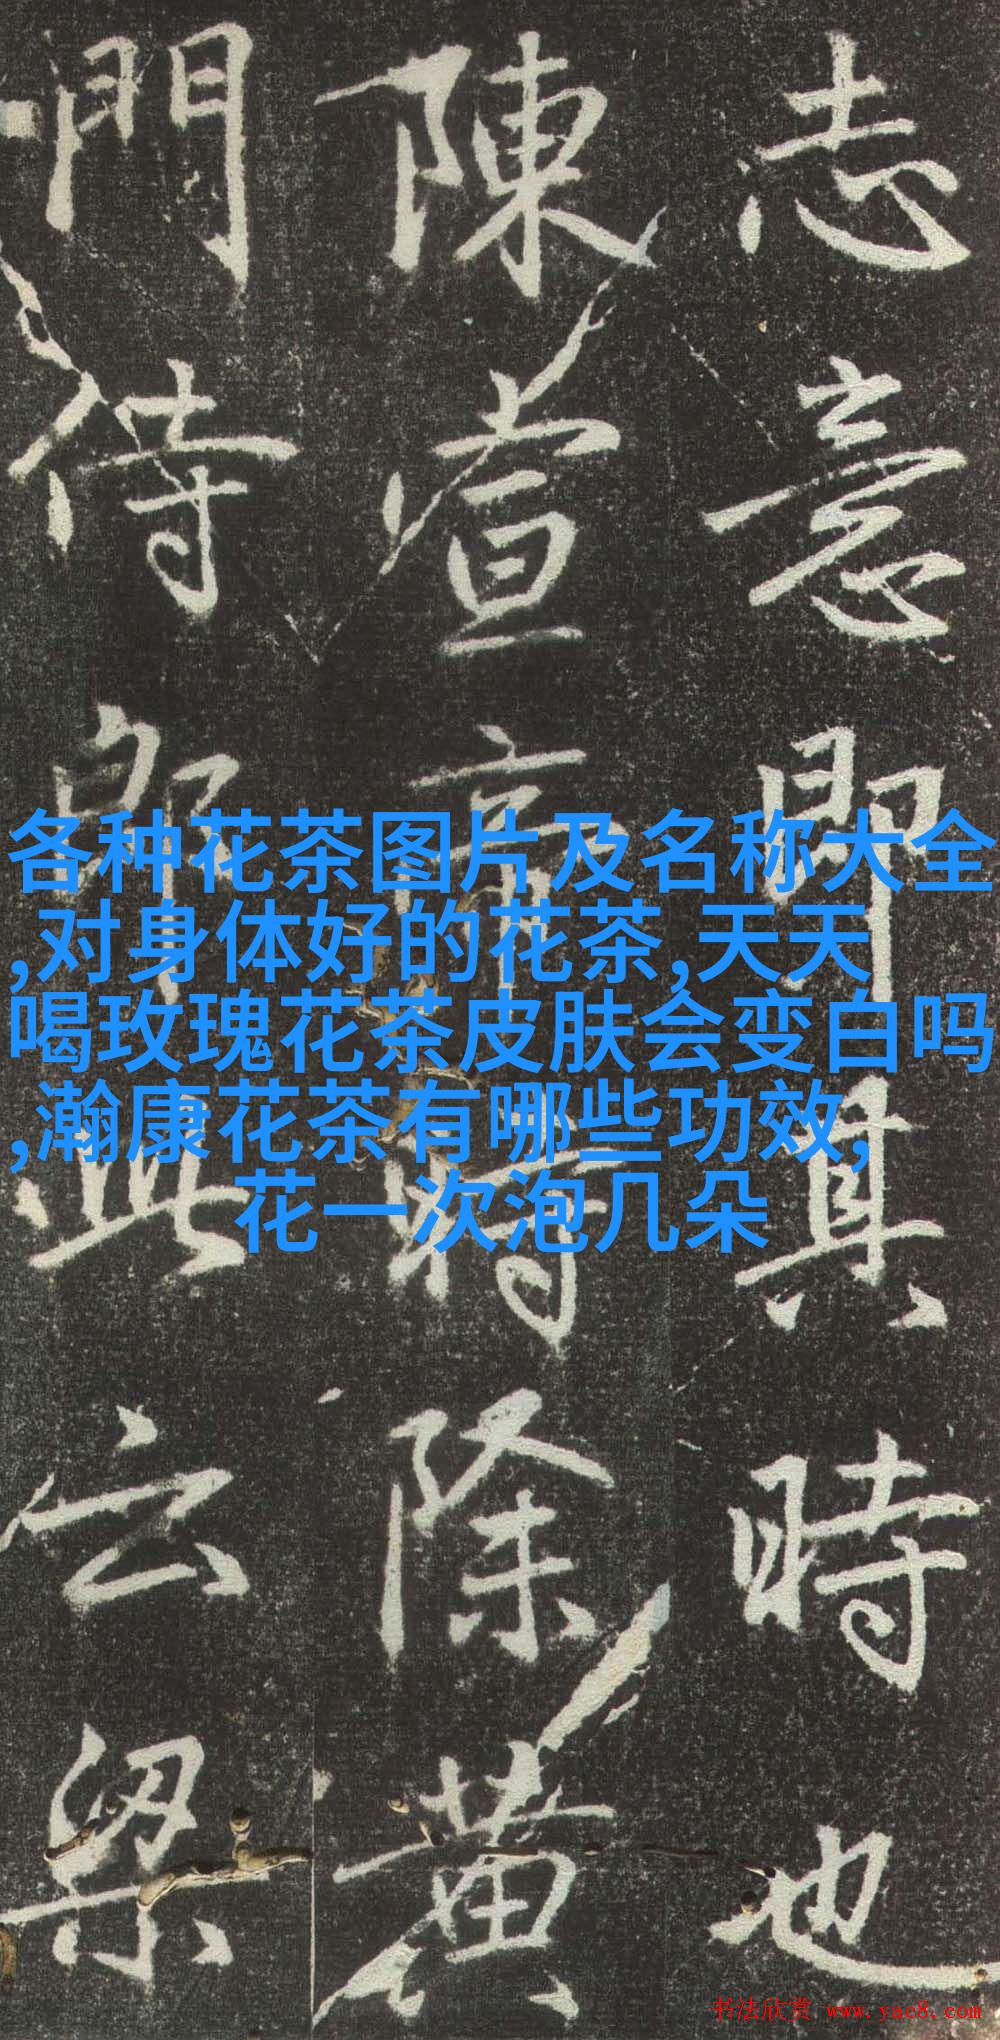 志意即其時也
陳宣帝時除黄
門侍郎此云梁
各种花茶图片及名称大全
,对身体好的花茶,天天
喝玫瑰花茶皮肤会变白吗
,瀚康花茶有哪些功效,
花一次泡几朵
书法欣赏 www.yac8.com